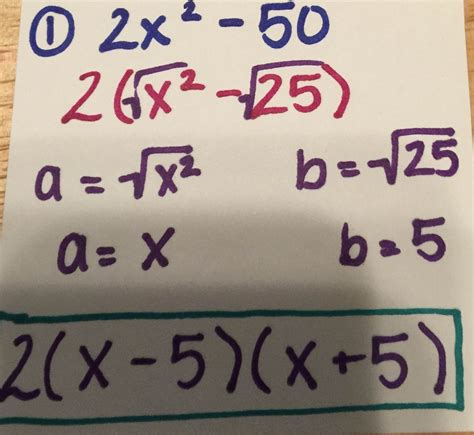 ① 2x² - 50
2(√x² - √25)
a = √x² b = √25
a = x b = 5
2(x - 5)(x + 5)